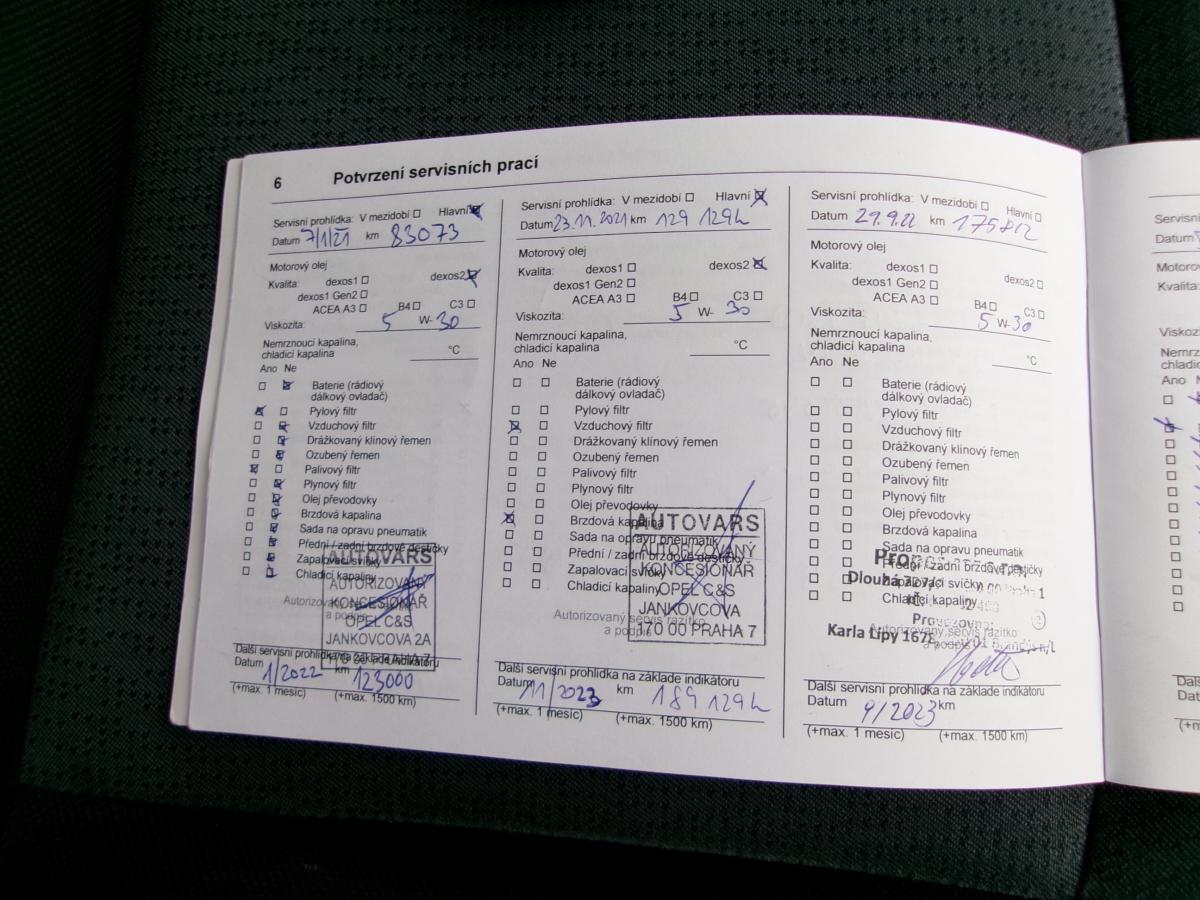 6 Potvrzení servisních prací
Servisní prohlídka: V mezidobí Hlavní
Datum 7/1/21 km 83073
Motorový olej
Kvalita: dexos1 dexos2
dexos1 Gen2
ACEA A3 B4 C3
Viskozita: 5 W- 30
Nemrznoucí kapalina,
chladicí kapalina °C
Ano Ne
Baterie (rádiový
dálkový ovladač)
Pylový filtr
Vzduchový filtr
Drážkovaný klínový řemen
Ozubený řemen
Palivový filtr
Plynový filtr
Olej převodovky
Brzdová kapalina
Sada na opravu pneumatik
Přední / zadní brzdové destičky
Zapalovací svíčky
Chladicí kapaliny
AUTOVARS
AUTORIZOVANÝ
KONCESIONÁŘ
OPEL C&S
JANKOVCOVA 2A
PRAHA 7
Další servisní prohlídka na základě indikátoru
Datum 1/2022 km 123000
(+max. 1 měsíc) (+max. 1500 km)
Servisní prohlídka: V mezidobí Hlavní
Datum 23.11.2021 km 129 129
Motorový olej
Kvalita: dexos1 dexos2
dexos1 Gen2
ACEA A3 B4 C3
Viskozita: 5 W- 30
Nemrznoucí kapalina,
chladicí kapalina °C
Ano Ne
Baterie (rádiový
dálkový ovladač)
Pylový filtr
Vzduchový filtr
Drážkovaný klínový řemen
Ozubený řemen
Palivový filtr
Plynový filtr
Olej převodovky
Brzdová kapalina
Sada na opravu pneumatik
Přední / zadní brzdové destičky
Zapalovací svíčky
Chladicí kapaliny
AUTOVARS
AUTORIZOVANÝ
KONCESIONÁŘ
OPEL C&S
JANKOVCOVA
170 00 PRAHA 7
Autorizovaný servis razítko
a podpis
Další servisní prohlídka na základě indikátoru
Datum 11/2023 km 189 129
(+max. 1 měsíc) (+max. 1500 km)
Servisní prohlídka: V mezidobí Hlavní
Datum 29.9.22 km 175812
Motorový olej
Kvalita: dexos1 dexos2
dexos1 Gen2
ACEA A3 B4 C3
Viskozita: 5 W- 30
Nemrznoucí kapalina,
chladicí kapalina °C
Ano Ne
Baterie (rádiový
dálkový ovladač)
Pylový filtr
Vzduchový filtr
Drážkovaný klínový řemen
Ozubený řemen
Palivový filtr
Plynový filtr
Olej převodovky
Brzdová kapalina
Sada na opravu pneumatik
Přední / zadní brzdové destičky
Zapalovací svíčky
Chladicí kapaliny
Dlouhá
Karla Lipy 1678
Autorizovaný servis razítko
a podpis
Další servisní prohlídka na základě indikátoru
Datum 9/2023 km
(+max. 1 měsíc) (+max. 1500 km)
Servisní
Datum
Kvalita:
Ano